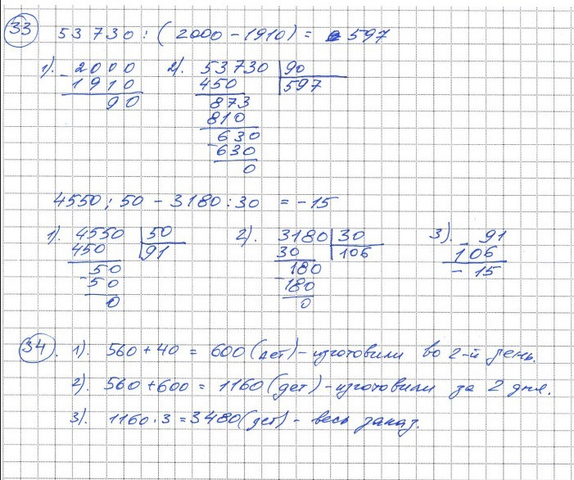 33 53 730 : ( 2000 - 1910 ) = 597
1). 2000 2). 53730 90
- 1910 450 597
90 873
810
630
- 630
0
4550 ; 50 - 3180 : 30 = - 15
1). 4550 50 2). 3180 30 3). - 91
450 91 30 106 106
50 180 - 15
- 50 - 180
0 0
34. 1). 560 + 40 = 600 (дет) - изготовили во 2-й день.
2). 560 + 600 = 1160 (дет) - изготовили за 2 дня.
3). 1160 · 3 = 3480 (дет) - весь заказ.